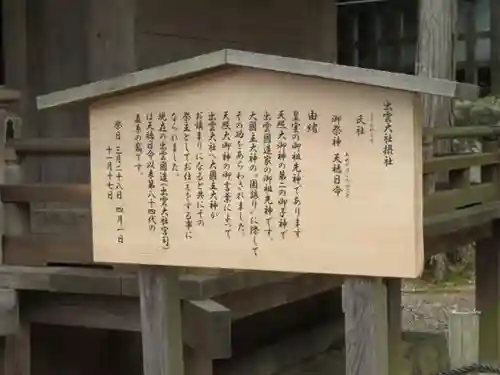 出雲大社摂社
氏社
御祭神 天穂日命
由緒
皇室の御祖先神であります
天照大御神の第二の御子神で
出雲國造家の御祖先神です。
大國主大神の"国譲り"に際して
その功をあらわされました。
天照大御神の御言葉によって
出雲大社へ大國主大神が
お鎮まりになると共にその
祭主としてお仕えをする事に
なられました。
現在の出雲國造（出雲大社宮司）
は天穂日命以来第八十四代の
直系の裔です。
祭日 三月二十八日 四月一日
十一月十七日